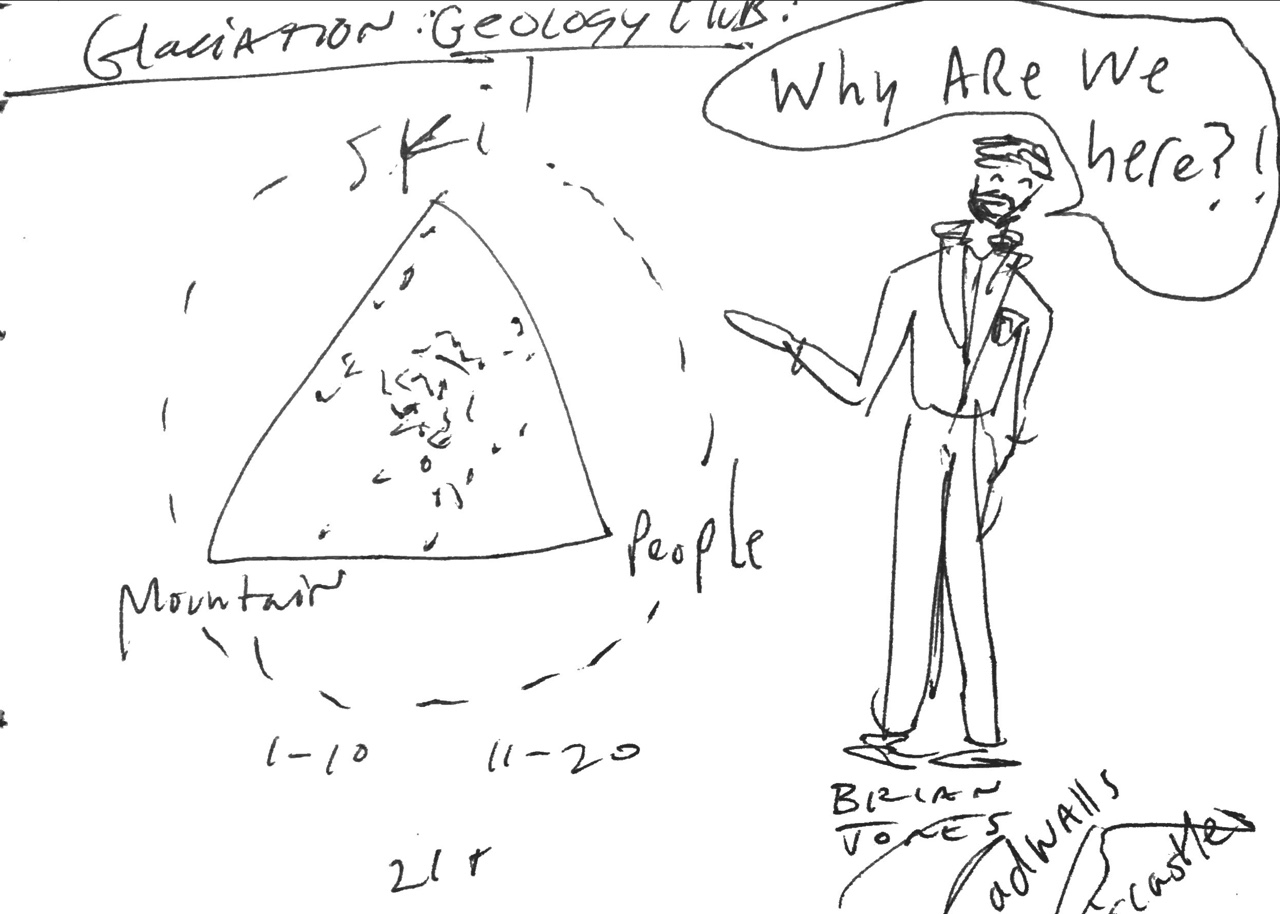 GlaciATION : Geology Club :
Why ARe We
here?!
SKi
People
Mountain
1-10 11-20
21+
BRIAN
JONES
adwalls